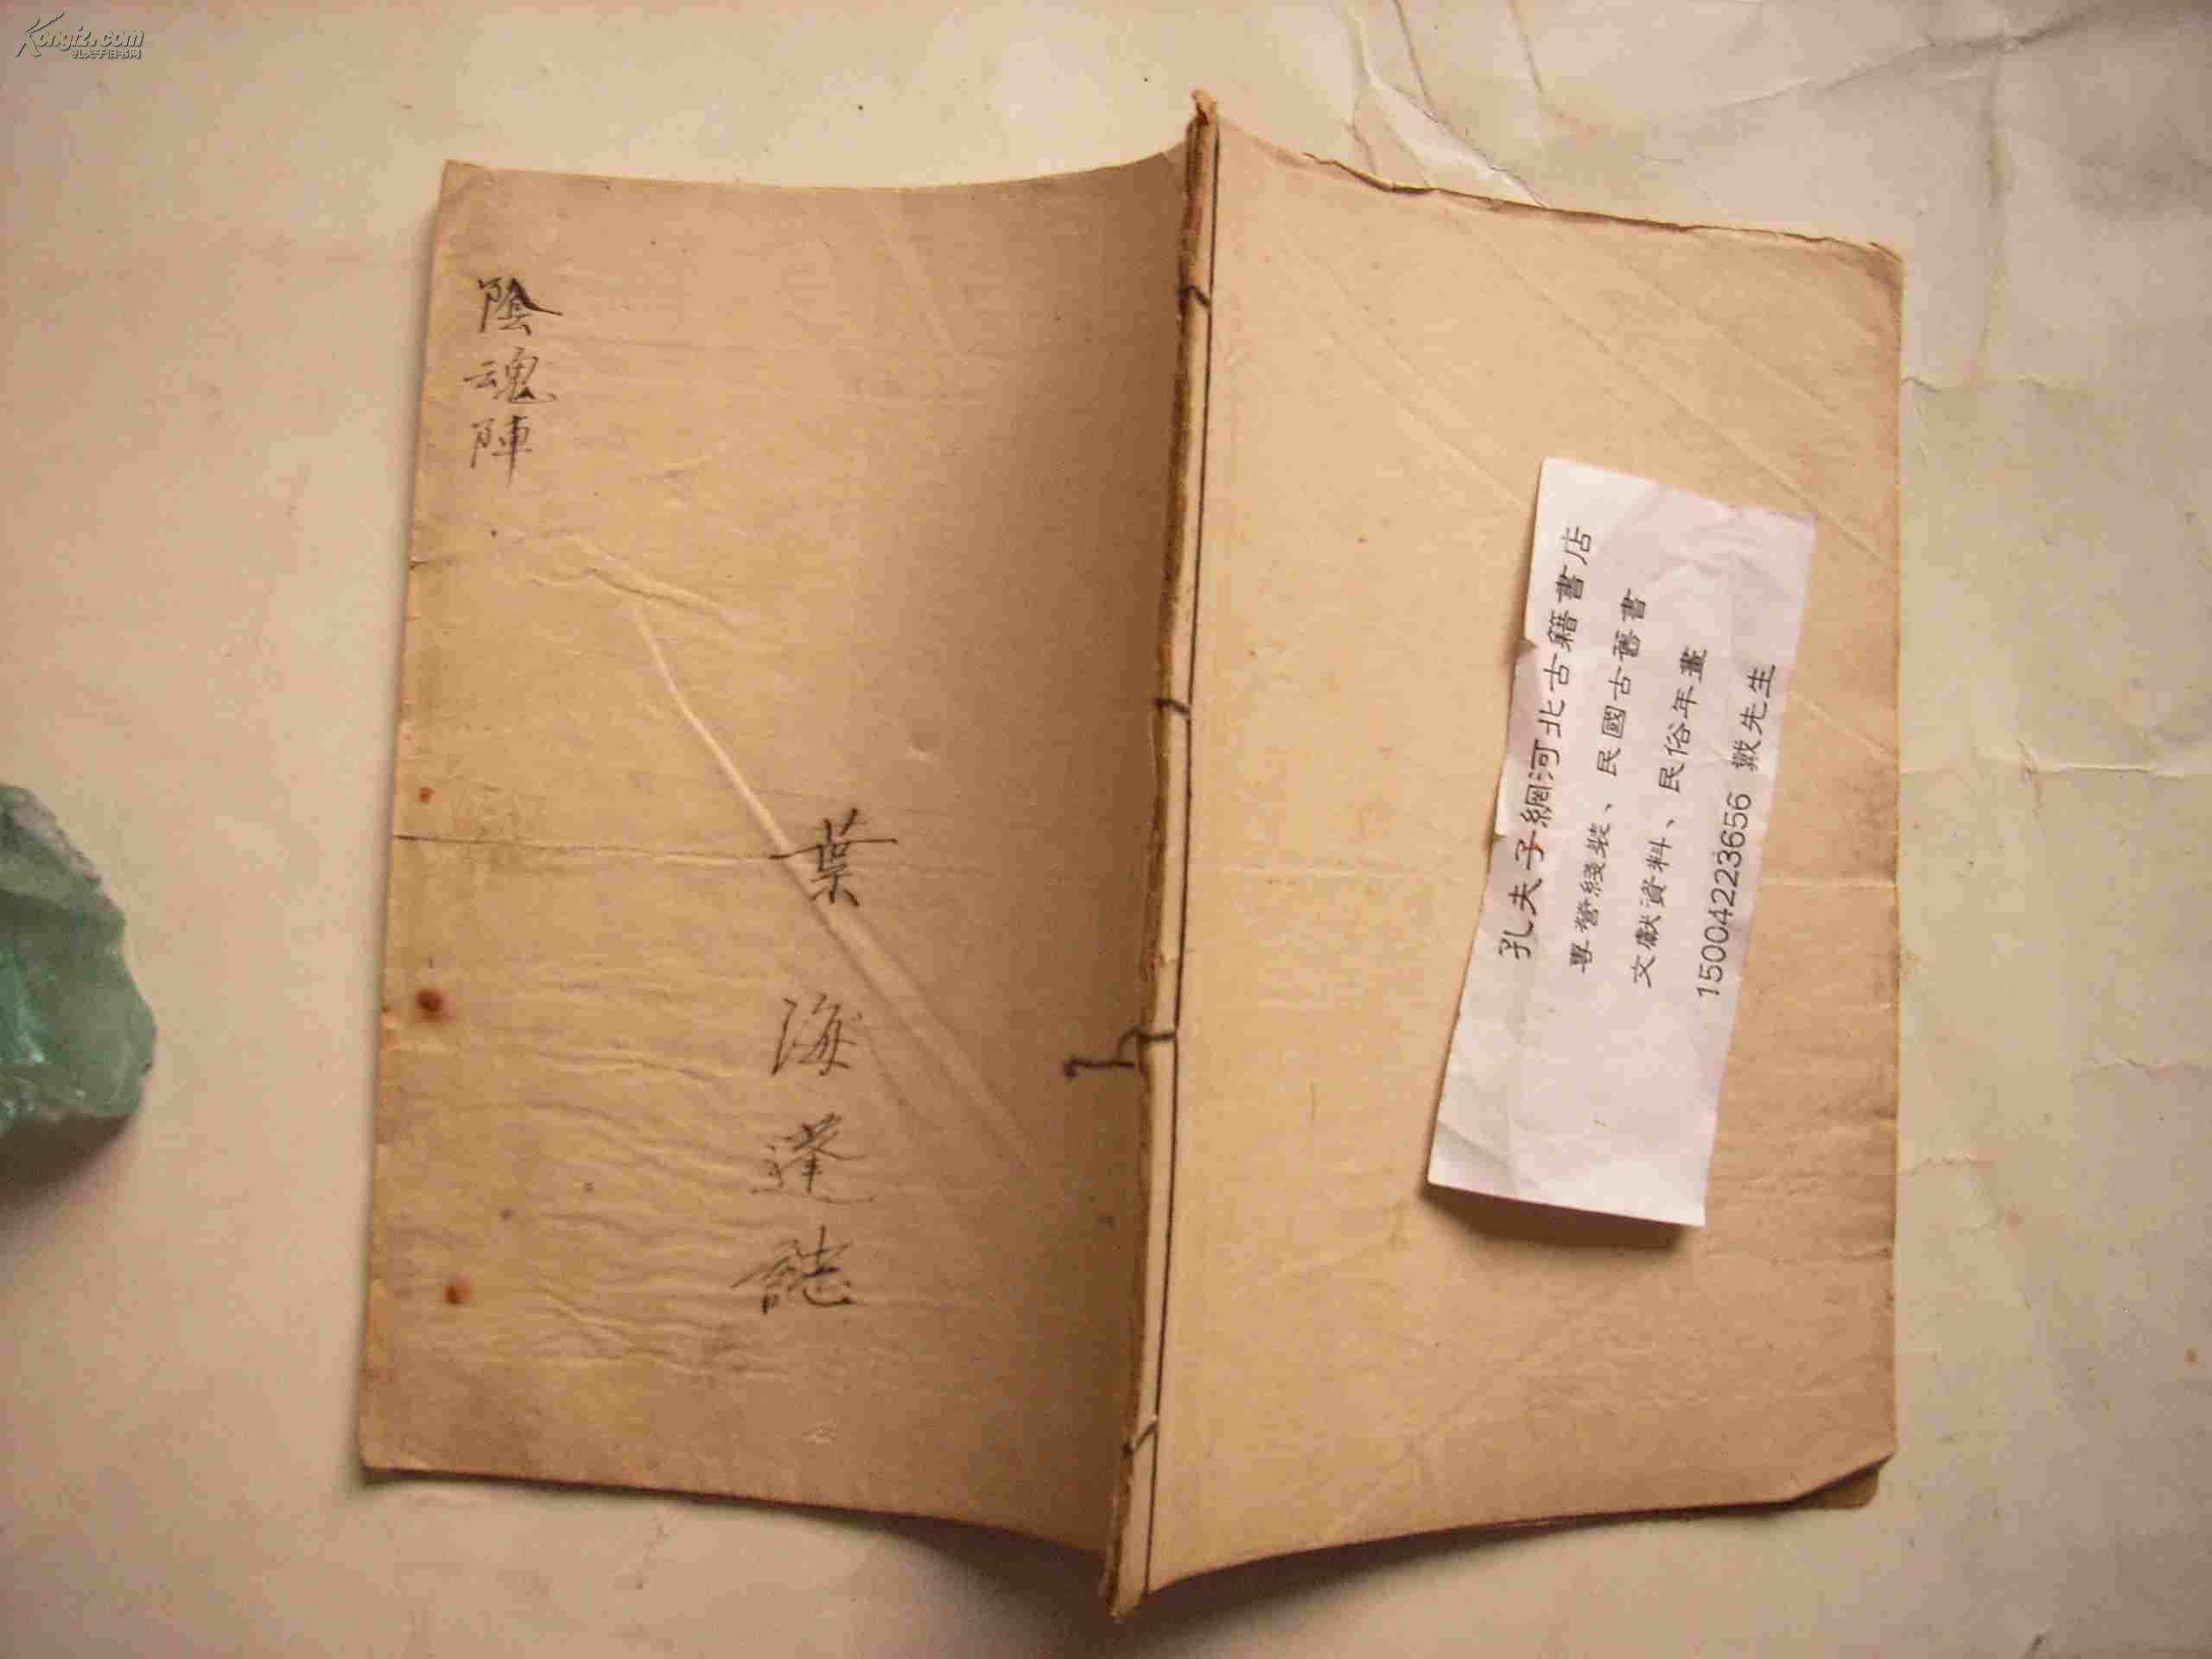 Kongfz.com
孔夫子旧书网
陰魂陣
葉海逢誌
孔夫子網河北古籍書店
專營綫裝、民國古舊書
文獻資料、民俗年畫
15004223656 戴先生